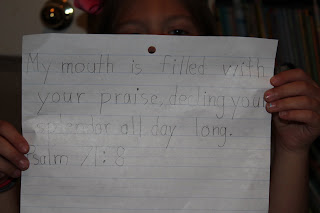 My mouth is filled with
your praise, decling your
splendor all day long.
Psalm 71:8